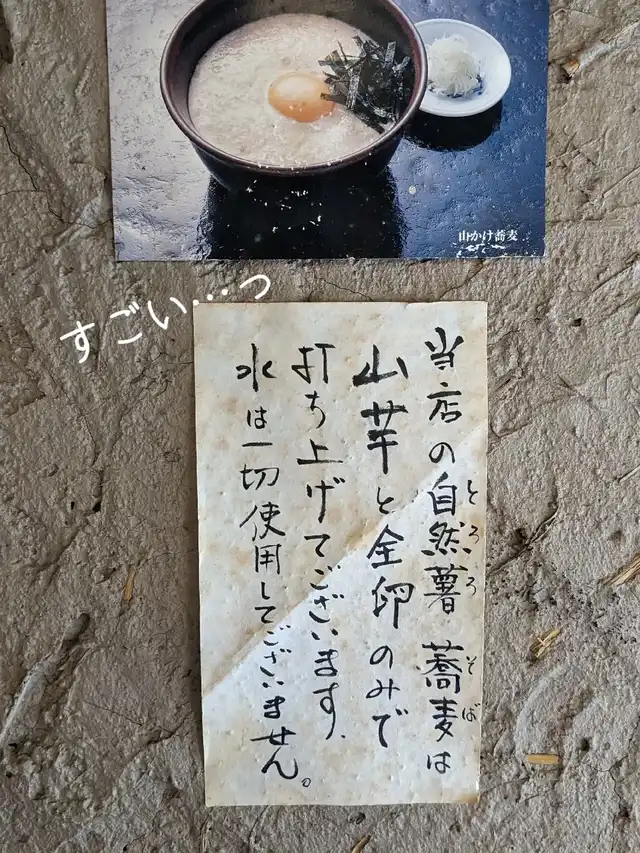 山かけ蕎麦
すごい…っ
当店の自然薯蕎麦は
とろろ
そば
山芋と全卵のみで
打ち上げてございます、
水は一切使用してございません。